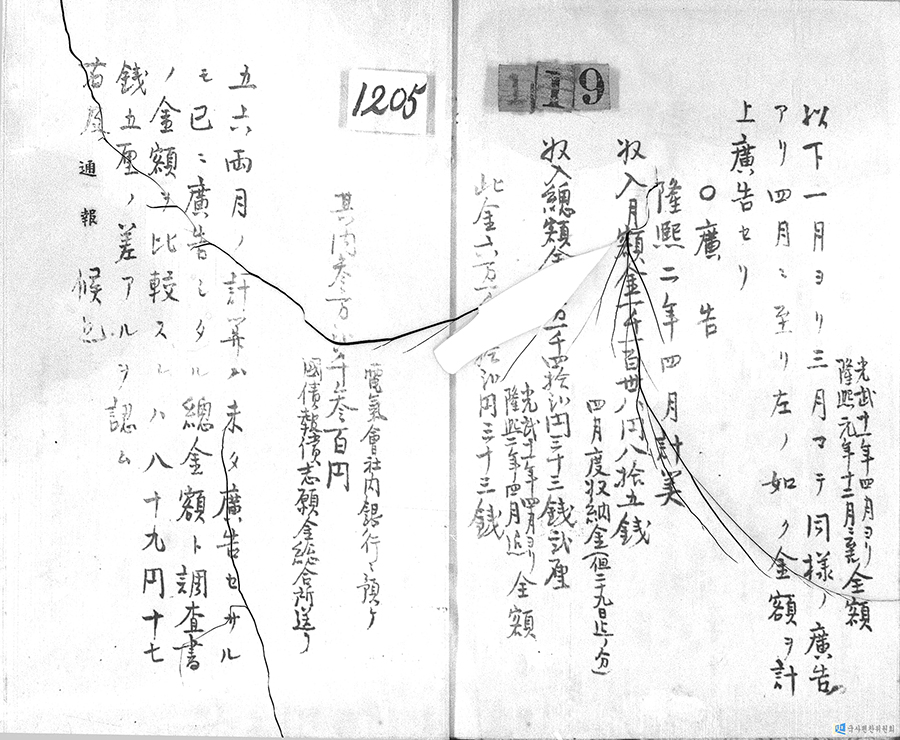 光武十一年四月ヨリ
隆熙元年十二月ニ至ル全額
以下一月ヨリ三月マテ同様ノ廣告
アリ四月ニ至リ左ノ如ク金額ヲ計
上廣告セリ
〇廣告
隆熙二年四月計筭
收入月額金 百丗八円八拾五銭
四月度收納金(但二十九日迄ノ分)
收入總額金 千四拾弐円三十三銭弐厘
光武十一年四月ヨリ
隆熙二年四月迄 全額
此金六万 拾弐円三十三銭
119
電氣會社内銀行ニ預ケ
其内参万 千参百円
國債報償志願金総合所送リ
1205
五六両月ノ計筭ハ未タ廣告セサル
モ已ニ廣告シタル總金額ト調査書
ノ金額ヲ比較スレハ八十九円十七
銭五厘ノ差アルヲ認ム
通報候也
국사편찬위원회